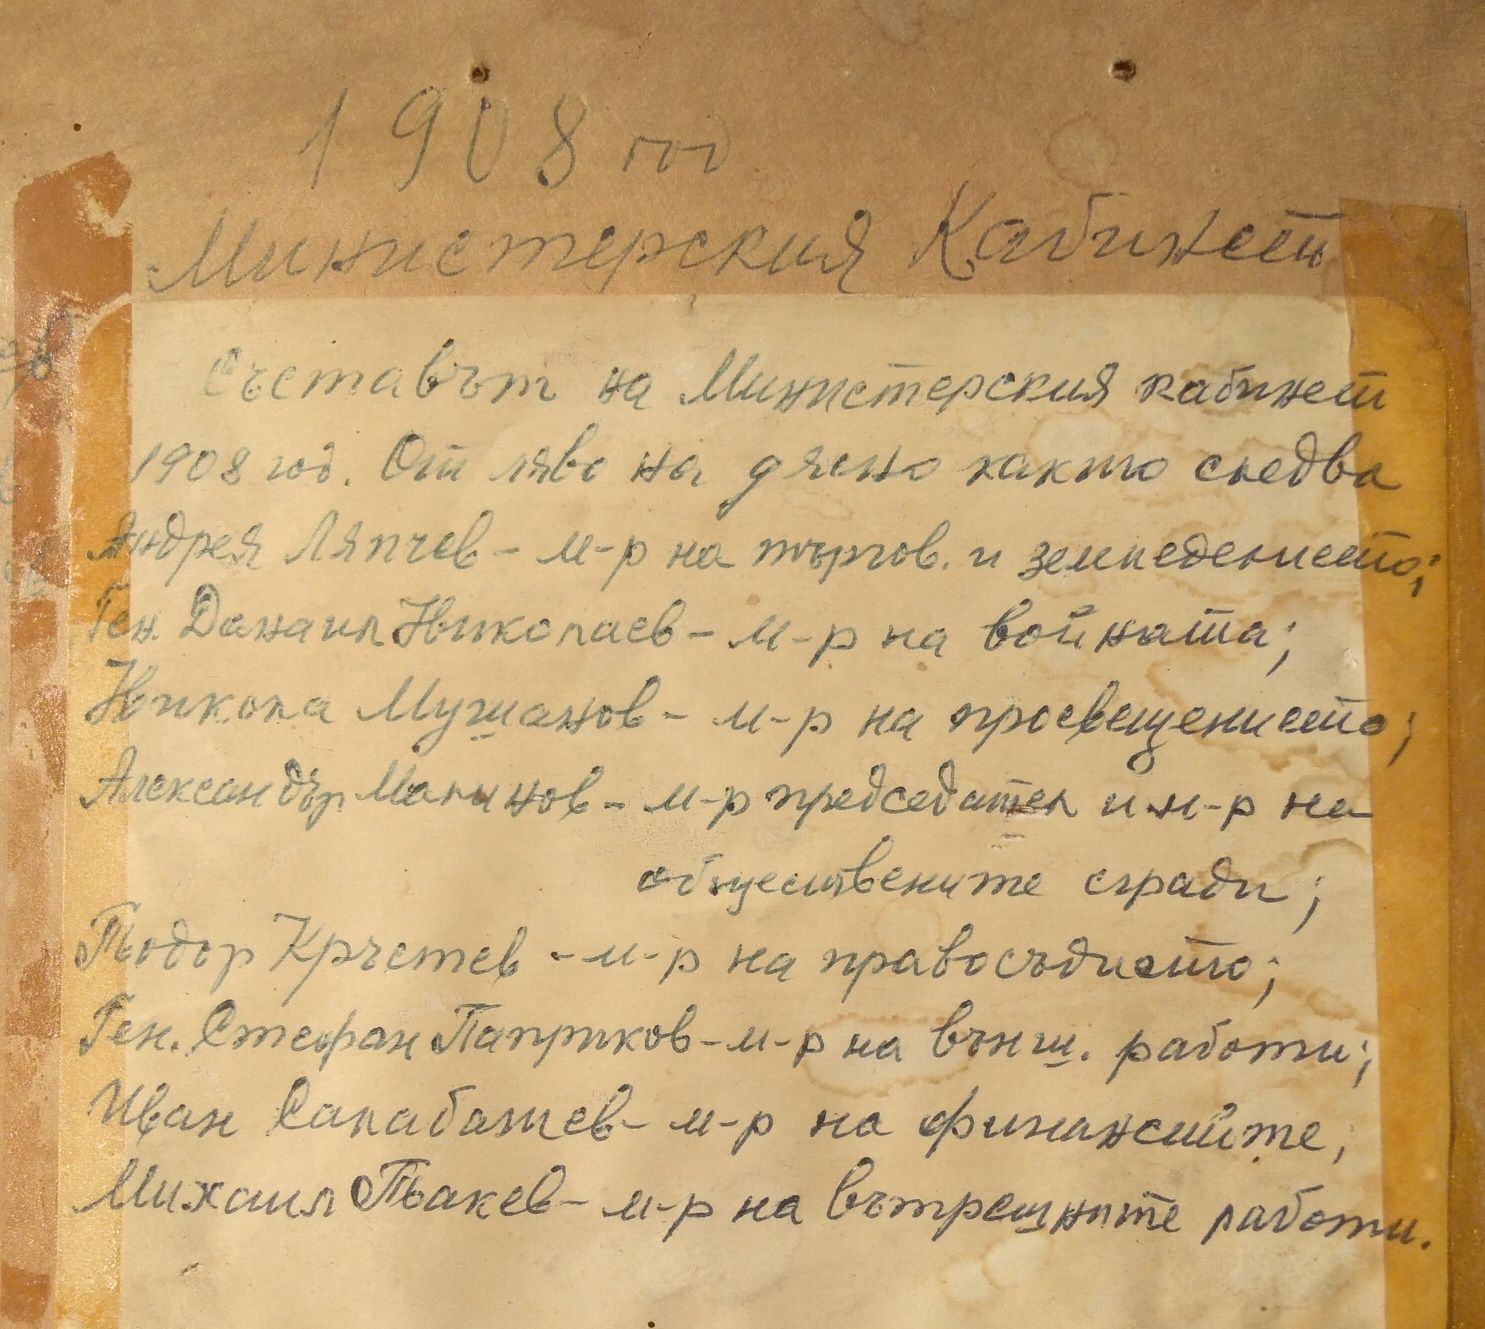 1908 год
Министерския Кабинет
Съставът на Министерския кабинет
1908 год. От ляво на дясно както следва
Андрея Ляпчев - м-р на търгов. и земледелието;
Ген. Данаил Николаев - м-р на войната;
Никола Мушанов - м-р на просвещението;
Александър Малинов - м-р председател и м-р на
обществените сгради;
Тодор Кръстев - м-р на правосъдието;
Ген. Стефан Паприков - м-р на външ. работи;
Иван Салабашев - м-р на финансиите;
Михаил Такев - м-р на вътрешните работи.